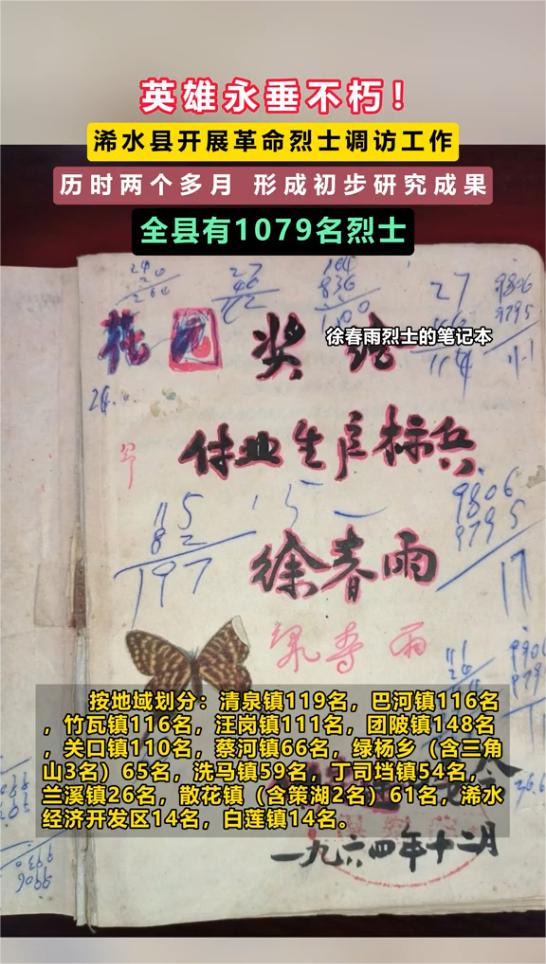 英雄永垂不朽！
浠水县开展革命烈士调访工作
历时两个多月 形成初步研究成果
全县有1079名烈士
24
27
46
164
836
1100
27
114
9806
9795
11.1
奖给
徐春雨烈士的笔记本
24.
付业生产标兵
115
82
197
15
9806
9795
11
徐春雨
雨
按地域划分：清泉镇119名，巴河镇116名
，竹瓦镇116名，汪岗镇111名，团陂镇148名
，关口镇110名，蔡河镇66名，绿杨乡（含三角
山3名）65名，洗马镇59名，丁司垱镇54名，
兰溪镇26名，散花镇（含策湖2名）61名，浠水
经济开发区14名，白莲镇14名。
一九六四年十二月